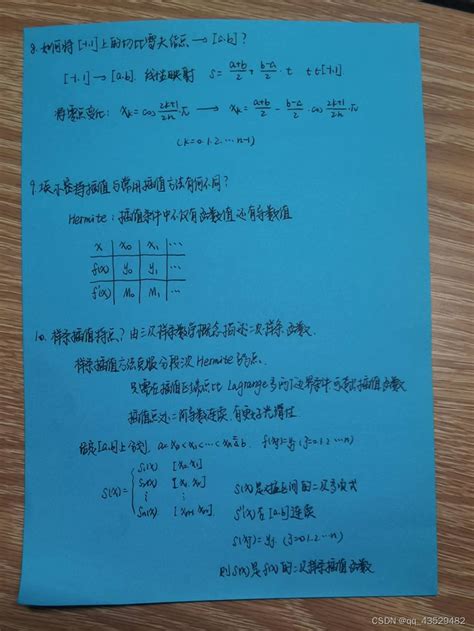 8. 如何将[-1,1]上的切比雪夫结点 → [a.b]?
[-1.1] → [a.b]. 线性映射 s = (a+b)/2 + (b-a)/2 · t  t∈[-1.1]
将零点变化: xₖ = cos (2k+1)/2n π → xₖ = (a+b)/2 - (b-a)/2 · cos (2k+1)/2n π
(k=0.1.2.…n-1)
9. 埃尔米特插值与常用插值方法有何不同?
Hermite: 插值条件中不仅有函数值还有导数值
x x₀ x₁ …
f(x) y₀ y₁ …
f'(x) M₀ M₁ …
10. 样条插值特点? 由三次样条数学概念描述三次样条函数.
样条插值方法克服分段三次Hermite的缺点.
只需在插值区间端点比Lagrange多两个边界条件
插值点处二阶导数连续, 有更好光滑性
给定[a.b]上分划, a=x₀<x₁<…<xₙ=b. f(xj)=yj (j=0.1.2…n)
S(x) = { S₁(x) [x₀.x₁]
S₂(x) [x₁.x₂]
⋮ ⋮
Sₙ(x) [xₙ₋₁.xₙ]
S(x)是
S''(x)在[a.b]连续
S(xj)=yj (j=0.1.2…n)
则S(x)是f(x)的三次样条插值函数
CSDN @qq_43529482